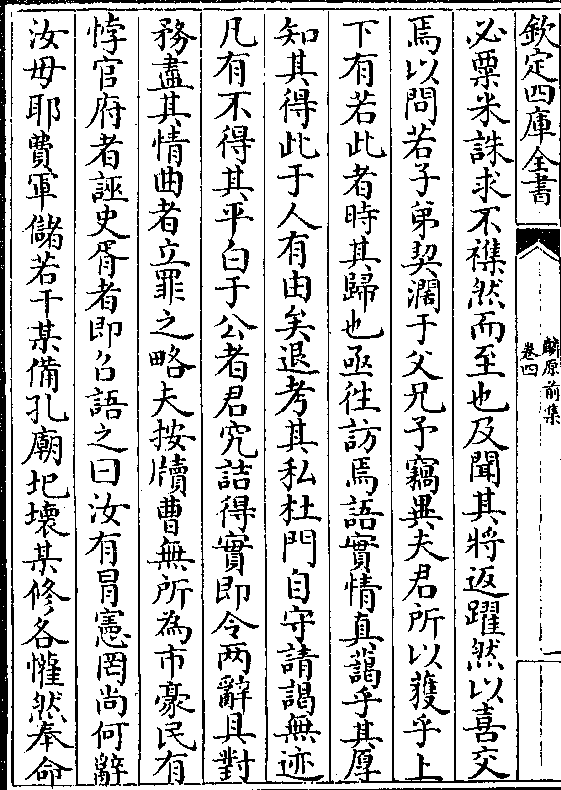 欽定四庫全書
麟原前集
卷四
一
必粟米誅求不襍然而至也及聞其將返躍然以喜交
焉以問若子弟契濶于父兄予竊異夫君所以獲乎上
下有若此者時其歸也亟往訪焉語實情真藹乎其厚
知其得此于人有由矣退考其私杜門自守請謁無迹
凡有不得其平白于公者君究詰得實即令两辭具對
務盡其情曲者立罪之略夫按牘曹無所為市豪民有
悖官府者誣史胥者即召語之曰汝有冒憲罔尚何辭
汝毋耶費軍儲若干某備孔廟圯壞某修各懽然奉命